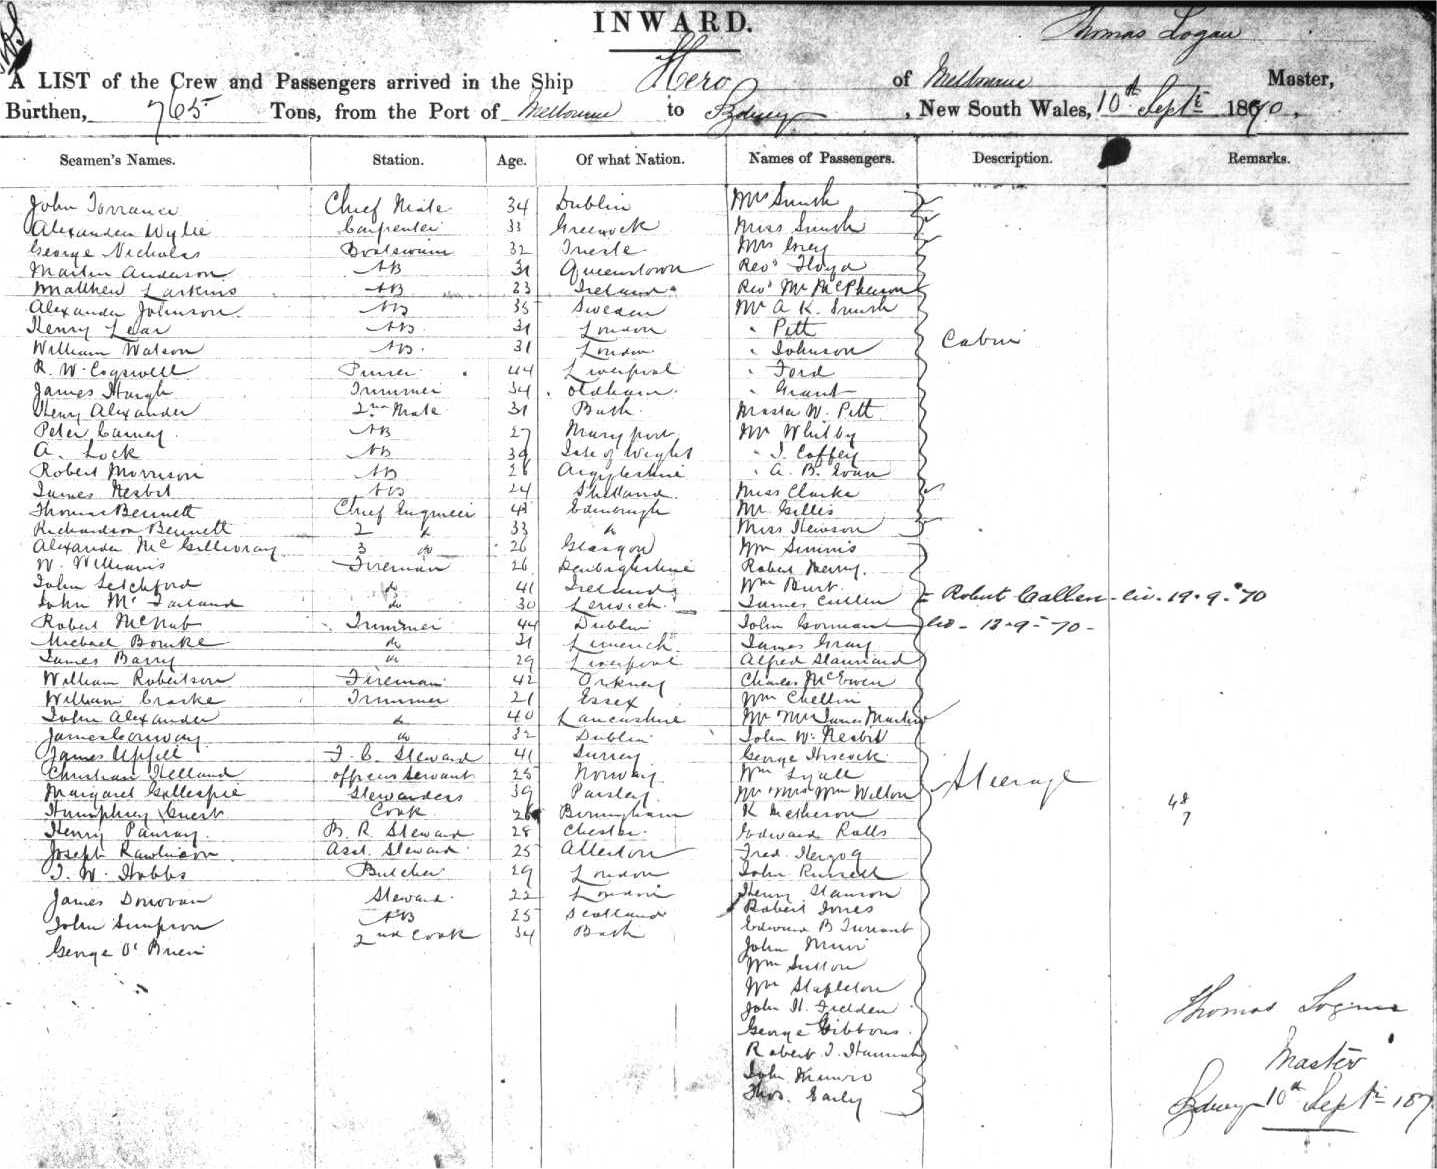 INWARD.
Thomas Logan
A LIST of the Crew and Passengers arrived in the Ship Hero of Melbourne Master,
Burthen, 765 Tons, from the Port of Melbourne to Sydney, New South Wales, 10th Sept 1870.
Seamen's Names. Station. Age. Of what Nation. Names of Passengers. Description. Remarks.
John Torrance Chief Mate 34 Dublin Mrs Smith
Alexander Wylie Carpenter 33 Greenock Miss Smith
George Nicholas Boatswain 32 Trieste Mrs Grey
Martin Anderson AB 31 Queenstown Revd Floyd
Matthew Larkins AB 23 Ireland Revd Mr McPherson
Alexander Johnson AB 35 Sweden Mr A K. Smith
Henry Lear AB 31 London " Pitt
William Watson AB 31 London " Johnson Cabin
R. W. Cogswell Purser 44 Liverpool " Ford
James Hough Trimmer 34 Oldham " Grant
Henry Alexander 2nd Mate 31 Bath Master W. Pitt
Peter Carney AB 27 Maryport Mr Whitby
A. Lock AB 39 Isle of Wight " J. Coffey
Robert Morrison AB 26 Argyleshire " A. B. Ivan
James Nesbit AB 24 Shetland Miss Clarke
Thomas Bennett Chief Engineer 43 Edinburgh Mr Gillis
Richardson Bennett 2 do 33 do Miss Hewson
Alexander McGillivray 3 do 26 Glasgow Wm Simms
W. Williams Fireman 26 Denbighshire Robert Merry
John Letchford do 41 Ireland Wm Burt
John McFarland do 30 Lerwick James Cullen = Robert Callen - 19.9.70
Robert McNab Trimmer 44 Dublin John Gorman - 13.9.70 -
Michael Bourke do 31 Limerick James Gray
James Barry do 29 Liverpool Alfred Stannard
William Robertson Fireman 42 Orkney Charles McEwen
William Craske Trimmer 21 Essex Wm Chellin
John Alexander do 40 Lancashire Mr Mrs James Martin
James Conway do 32 Dublin John W. Nesbit
James Upfill F. C. Steward 41 Surrey George Hiscock
Christian Helland officers servant 25 Norway Wm Lyall Steerage
Margaret Gillespie Stewardess 39 Paisley Mr Mrs Wm Wilton
Humphrey Guest Cook 26 Birmingham K Metherson 48
7
Henry Panray B. R. Steward 28 Chester Edward Ralls
Joseph Rawlinson Asst. Steward 25 Allerton Fred. Herzog
J. W. Hobbs Butcher 29 London John Russell
James Donovan Steward 22 London Henry Stanson
Robert Jones
John Simpson AB 25 Scotland Edward B Turrant
George O'Brien 2nd Cook 34 Bath John Muir
Wm Sutton
Wm Stapleton
John H. Fielden
George Gibbons
Robert J. Hannah
John Munro
Thos. Early
Thomas Logan
Master
Sydney 10th Sept 187